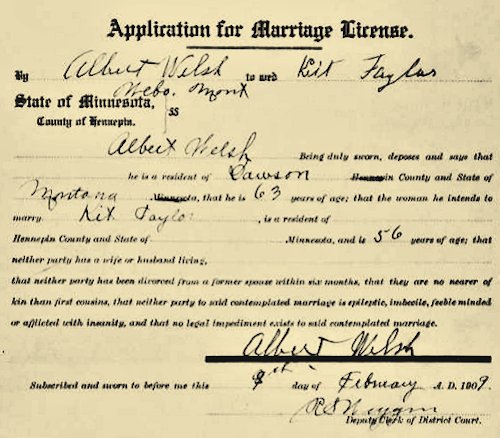 Application for Marriage License.
By Albert Welsh to wed Kit Taylor
Webo. Mont
State of Minnesota,
County of Hennepin. } SS
Albert Welsh Being duly sworn, deposes and says that
he is a resident of Dawson Hennepin County and State of
Montana Minnesota, that he is 63 years of age; that the woman he intends to
marry Kit Taylor, is a resident of
Hennepin County and State of Minnesota, and is 56 years of age; that
neither party has a wife or husband living,
that neither party has been divorced from a former spouse within six months, that they are no nearer of
kin than first cousins, that neither party to said contemplated marriage is epileptic, imbecile, feeble minded
or afflicted with insanity, and that no legal impediment exists to said contemplated marriage.
Albert Welsh
Subscribed and sworn to before me this 9th day of February A. D. 1909.
Deputy Clerk of District Court.